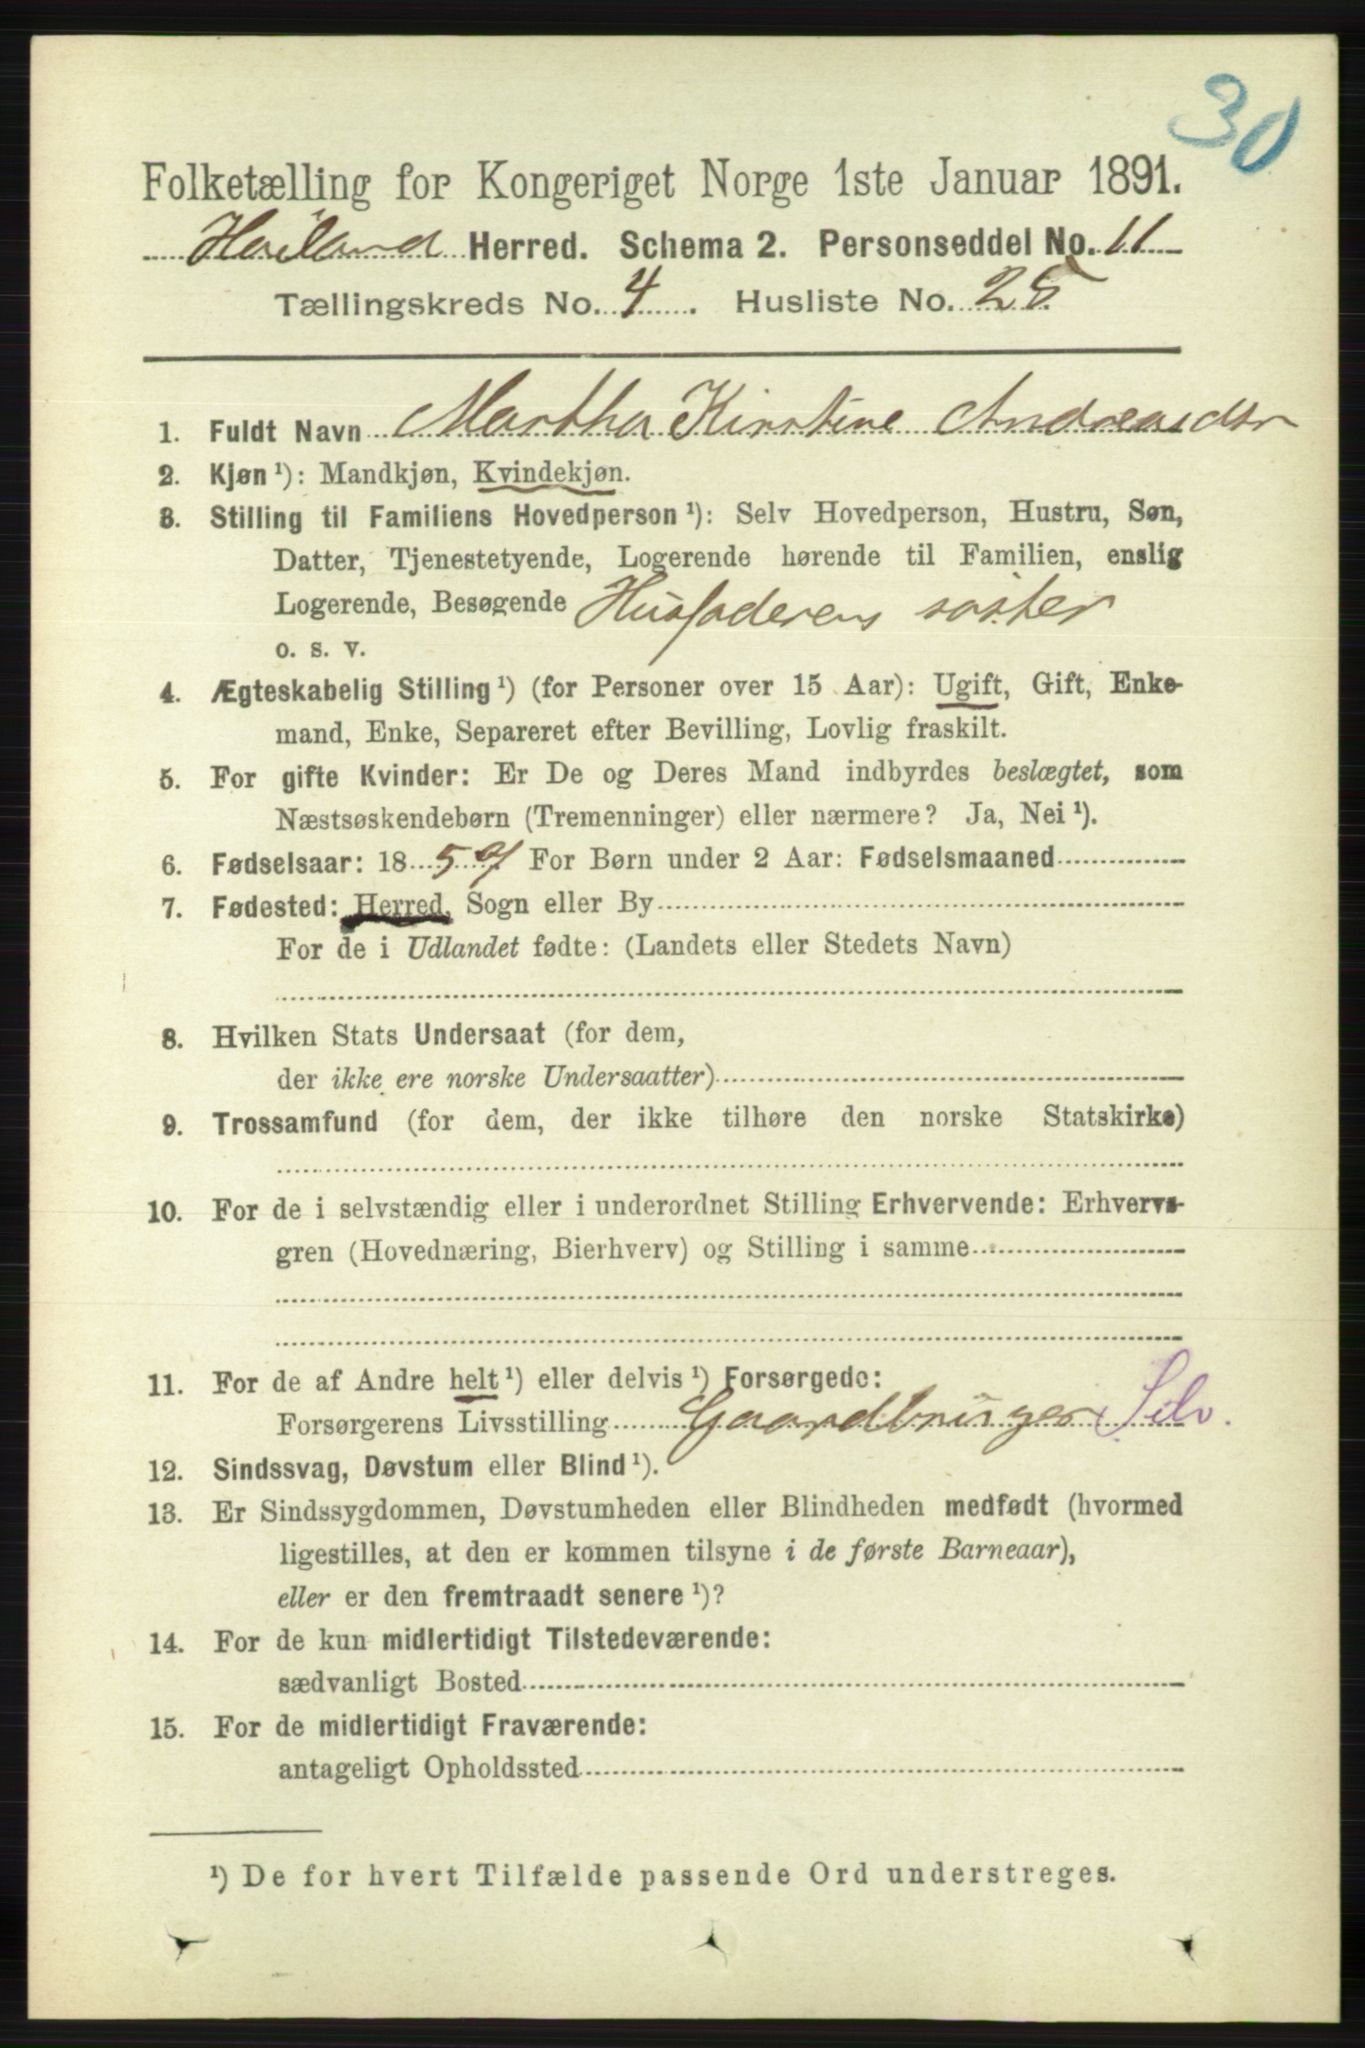 30
Folketælling for Kongeriget Norge 1ste Januar 1891.
Høiland Herred. Schema 2. Personseddel No. 11
Tællingskreds No. 4. Husliste No. 25
1. Fuldt Navn Martha Kirstine Andreasdtr
2. Kjøn ¹): Mandkjøn, Kvindekjøn.
3. Stilling til Familiens Hovedperson ¹): Selv Hovedperson, Hustru, Søn,
Datter, Tjenestetyende, Logerende hørende til Familien, enslig
Logerende, Besøgende Husfaderens søster
o. s. v.
4. Ægteskabelig Stilling ¹) (for Personer over 15 Aar): Ugift, Gift, Enke-
mand, Enke, Separeret efter Bevilling, Lovlig fraskilt.
5. For gifte Kvinder: Er De og Deres Mand indbyrdes beslægtet, som
Næstsøskendebørn (Tremenninger) eller nærmere? Ja, Nei ¹).
6. Fødselsaar: 1859 For Børn under 2 Aar: Fødselsmaaned
7. Fødested: Herred, Sogn eller By
For de i Udlandet fødte: (Landets eller Stedets Navn)
8. Hvilken Stats Undersaat (for dem,
der ikke ere norske Undersaatter)
9. Trossamfund (for dem, der ikke tilhøre den norske Statskirke)
10. For de i selvstændig eller i underordnet Stilling Erhvervende: Erhvervs-
gren (Hovednæring, Bierhverv) og Stilling i samme
11. For de af Andre helt ¹) eller delvis ¹) Forsørgede:
Forsørgerens Livsstilling Gaardbruger Selv.
12. Sindssvag, Døvstum eller Blind ¹).
13. Er Sindssygdommen, Døvstumheden eller Blindheden medfødt (hvormed
ligestilles, at den er kommen tilsyne i de første Barneaar),
eller er den fremtraadt senere ¹)?
14. For de kun midlertidigt Tilstedeværende:
sædvanligt Bosted
15. For de midlertidigt Fraværende:
antageligt Opholdssted
¹) De for hvert Tilfælde passende Ord understreges.